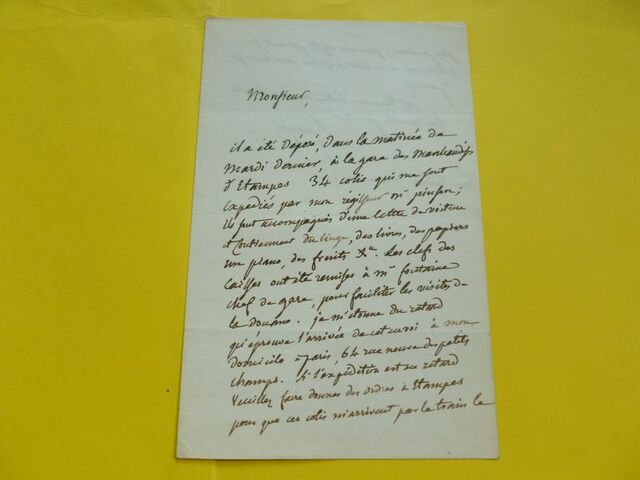 Monsieur,
il a été déposé, dans la matinée de
Mardi dernier, à la gare des Marchandises
d'Etampes 34 colis qui me sont
expédiés par mon régisseur Mr pinson;
ils sont accompagnés d'une lettre de voiture
et contiennent du linge, des livres, des papiers
un piano, des fruits &a. Les clefs des
caisses ont été remises à Mr fontaine
chef de gare, pour faciliter les visites de
la douane. je m'étonne du retard
qu'éprouve l'arrivée de cet envoi à mon
domicile à paris, 64 rue neuve des petits
champs. Si l'expédition est en retard
veuillez faire donner des ordres à Etampes
pour que ces colis m'arrivent par le train le